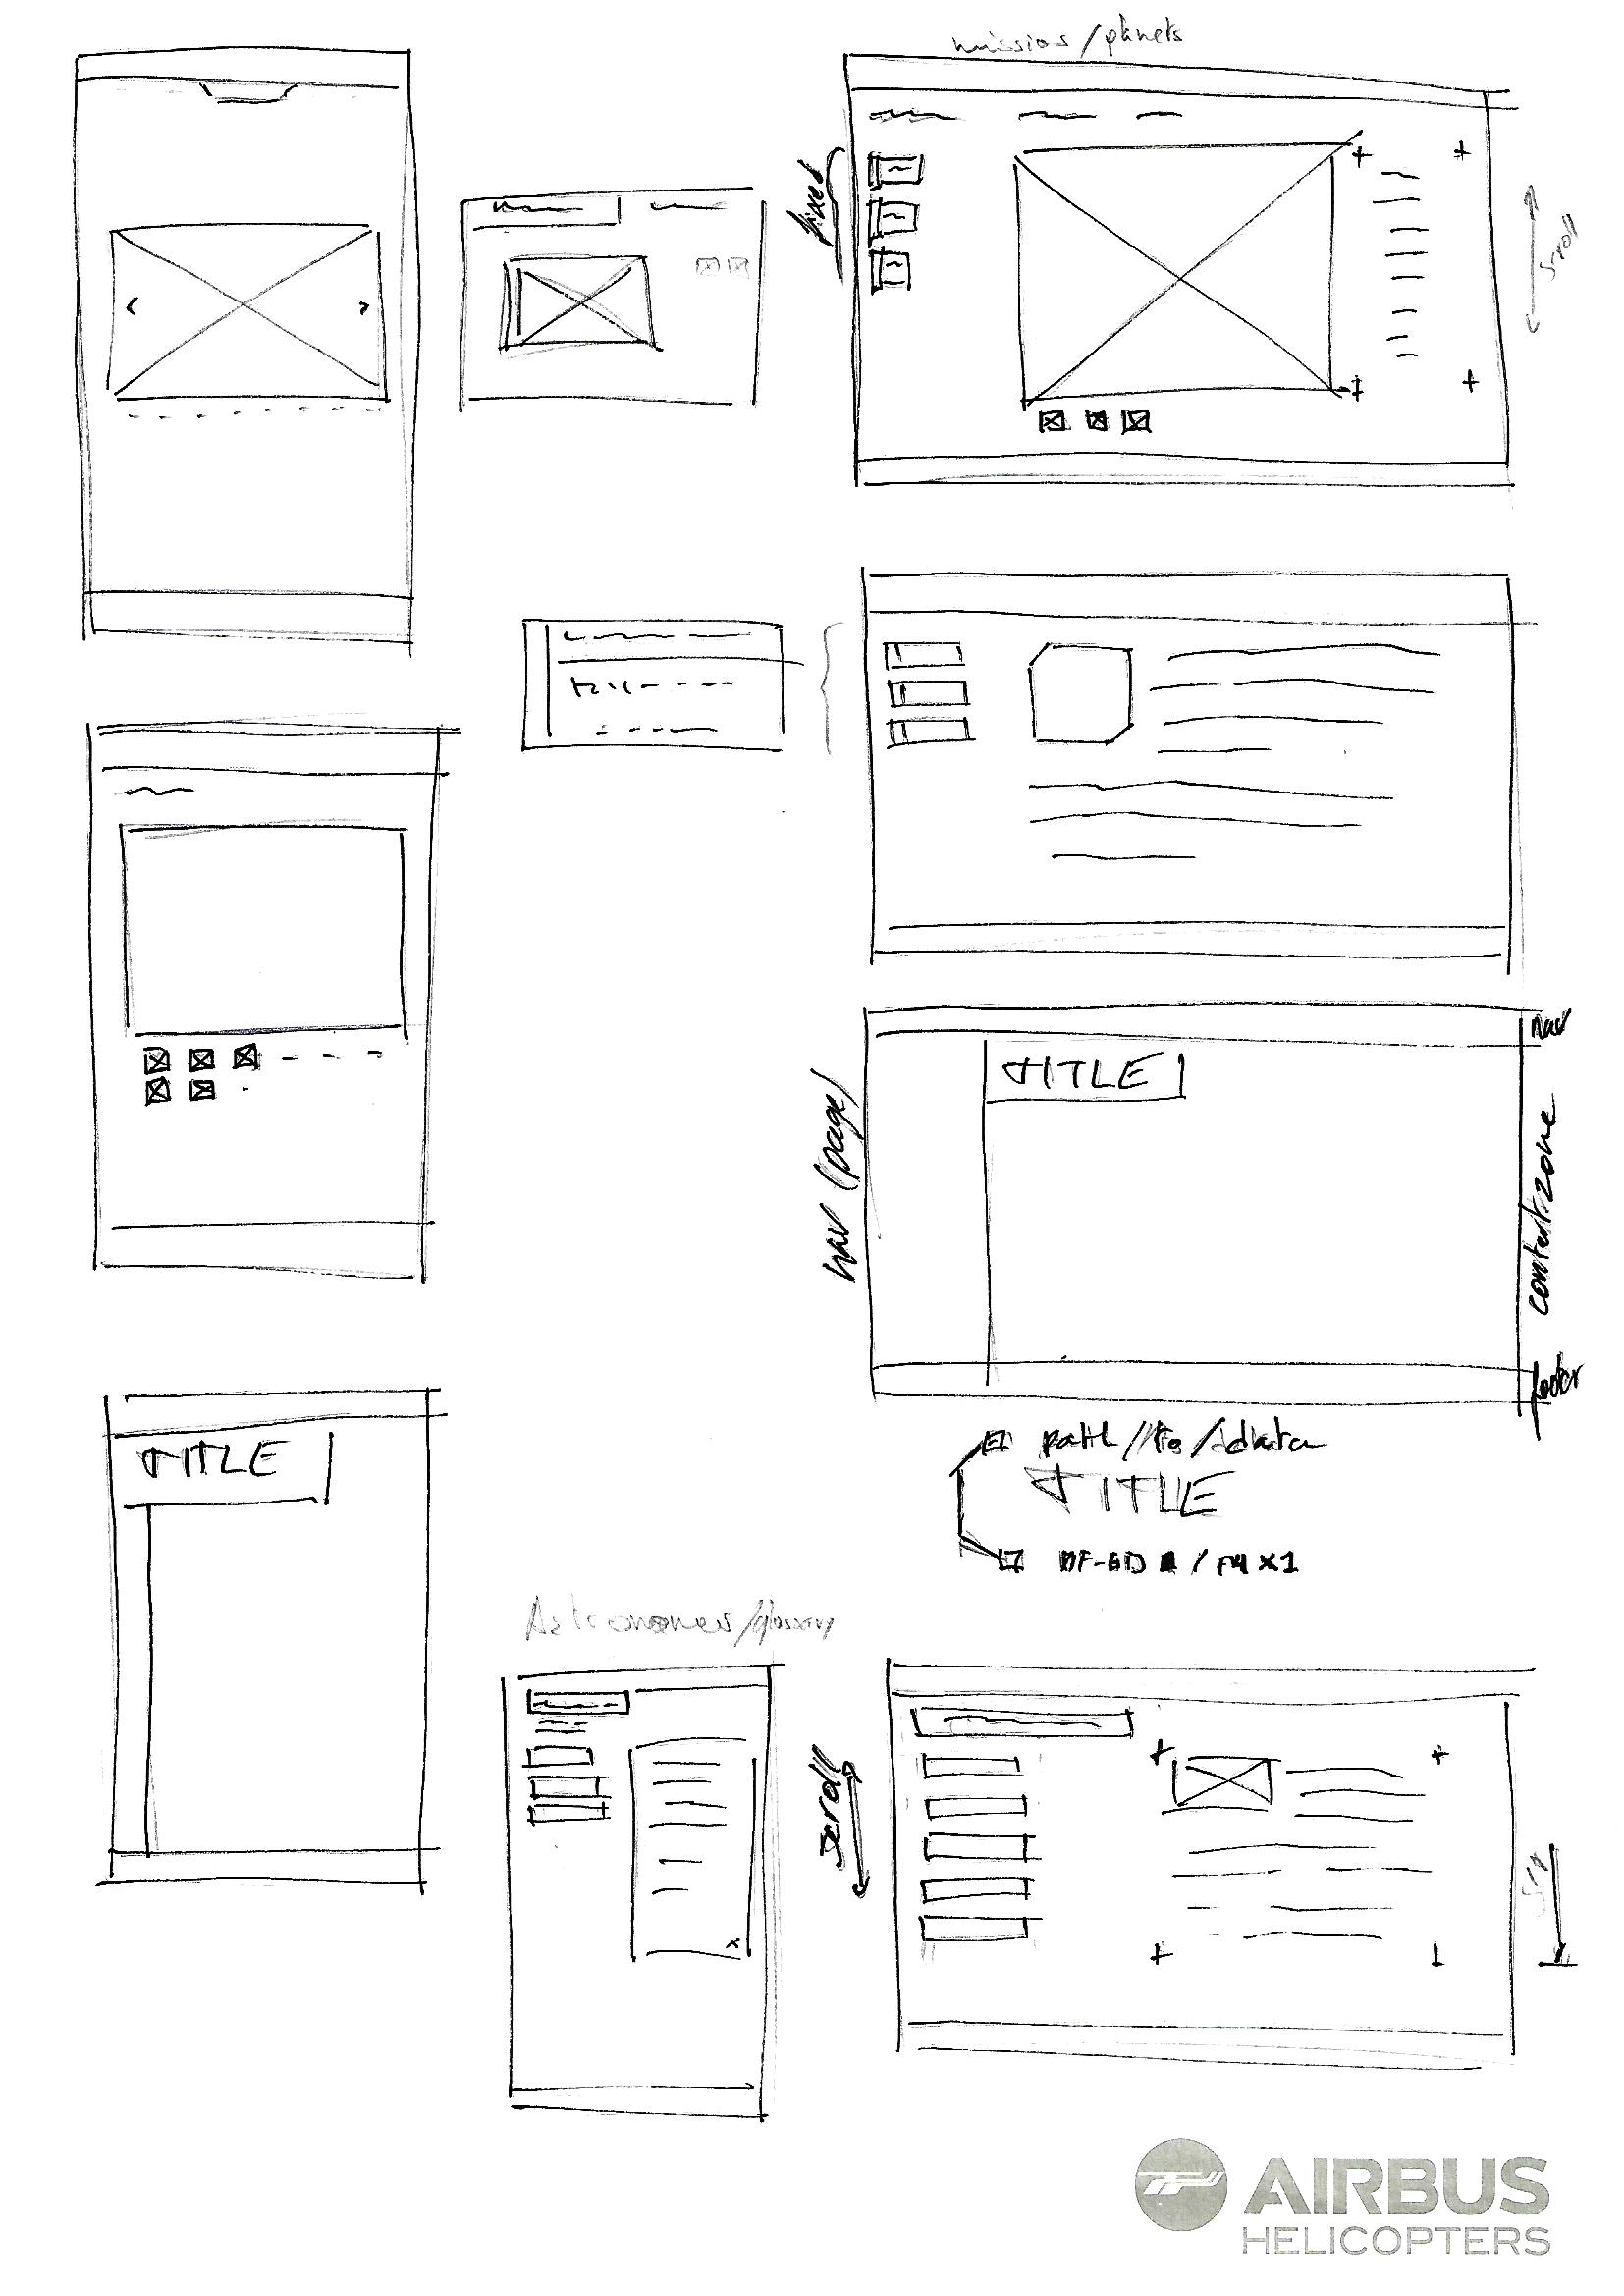 missions/planets
fixed
scroll
TITLE
nav
nav (page)
content zone
footer
TITLE
path//to/data
TITLE
Astronomers/glossary
scroll
AIRBUS
HELICOPTERS